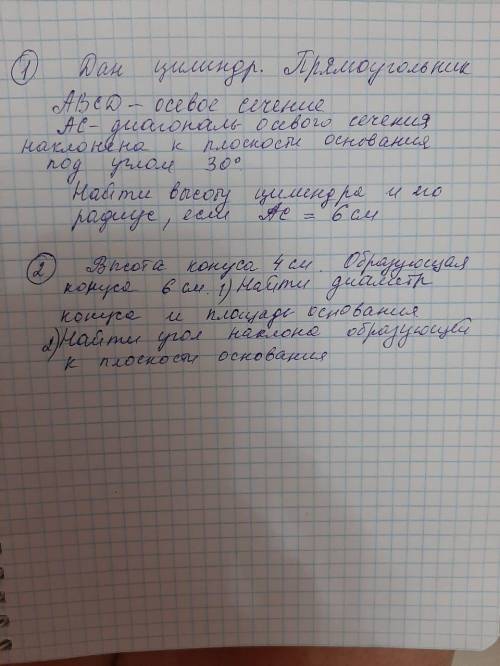 1 Дан цилиндр. Прямоугольник
ABCD - осевое сечение
AC - диагональ осевого сечения
наклонена к плоскости основания
под углом 30°
Найти высоту цилиндра и его
радиус, если AC = 6 см
2 Высота конуса 4 см. Образующая
конуса 6 см. 1) Найти диаметр
конуса и площадь основания
2) Найти угол наклона образующей
к плоскости основания